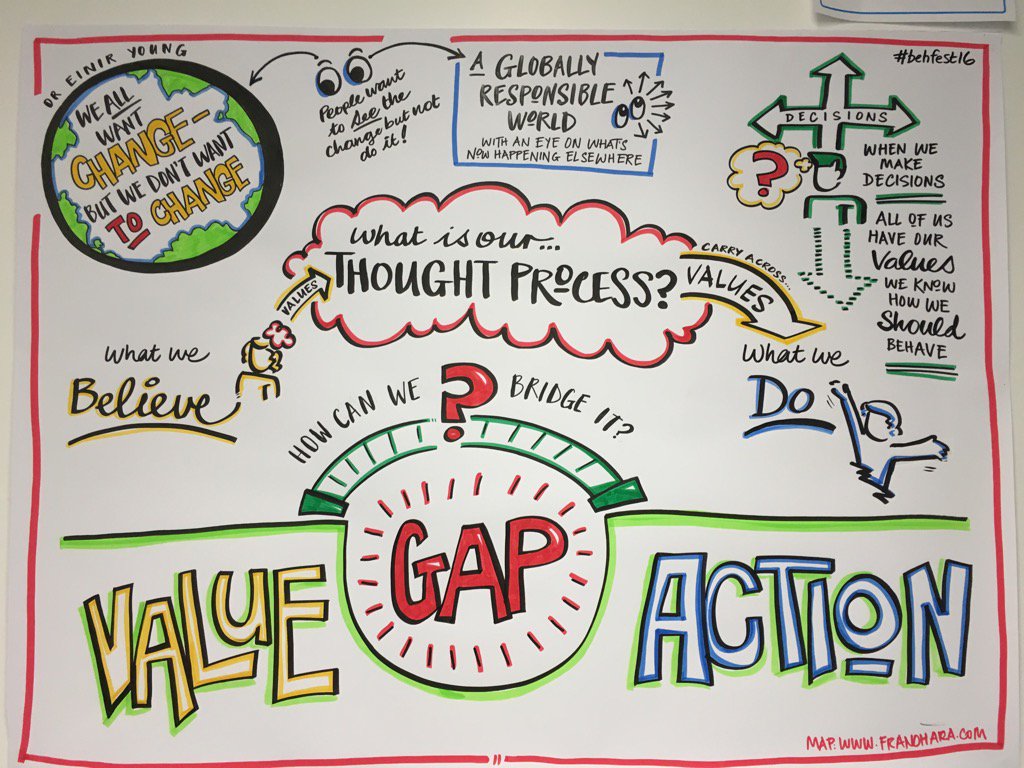 DR EINIR YOUNG
WE ALL
WANT
CHANGE-
BUT WE DON'T WANT
TO CHANGE
People want
to See the
change but not
do it!
A GLOBALLY
RESPONSIBLE
WORLD
WITH AN EYE ON WHAT'S
NOW HAPPENING ELSEWHERE
#behfest16
DECISIONS
?
WHEN WE
MAKE
DECISIONS
ALL OF US
HAVE OUR
Values
WE KNOW
HOW WE
Should
BEHAVE
What is our...
THOUGHT PROCESS?
VALUES
CARRY ACROSS...
VALUES
What we
Believe
What we
Do
HOW CAN WE ? BRIDGE IT?
VALUE GAP ACTION
MAP: WWW.FRANOHARA.COM